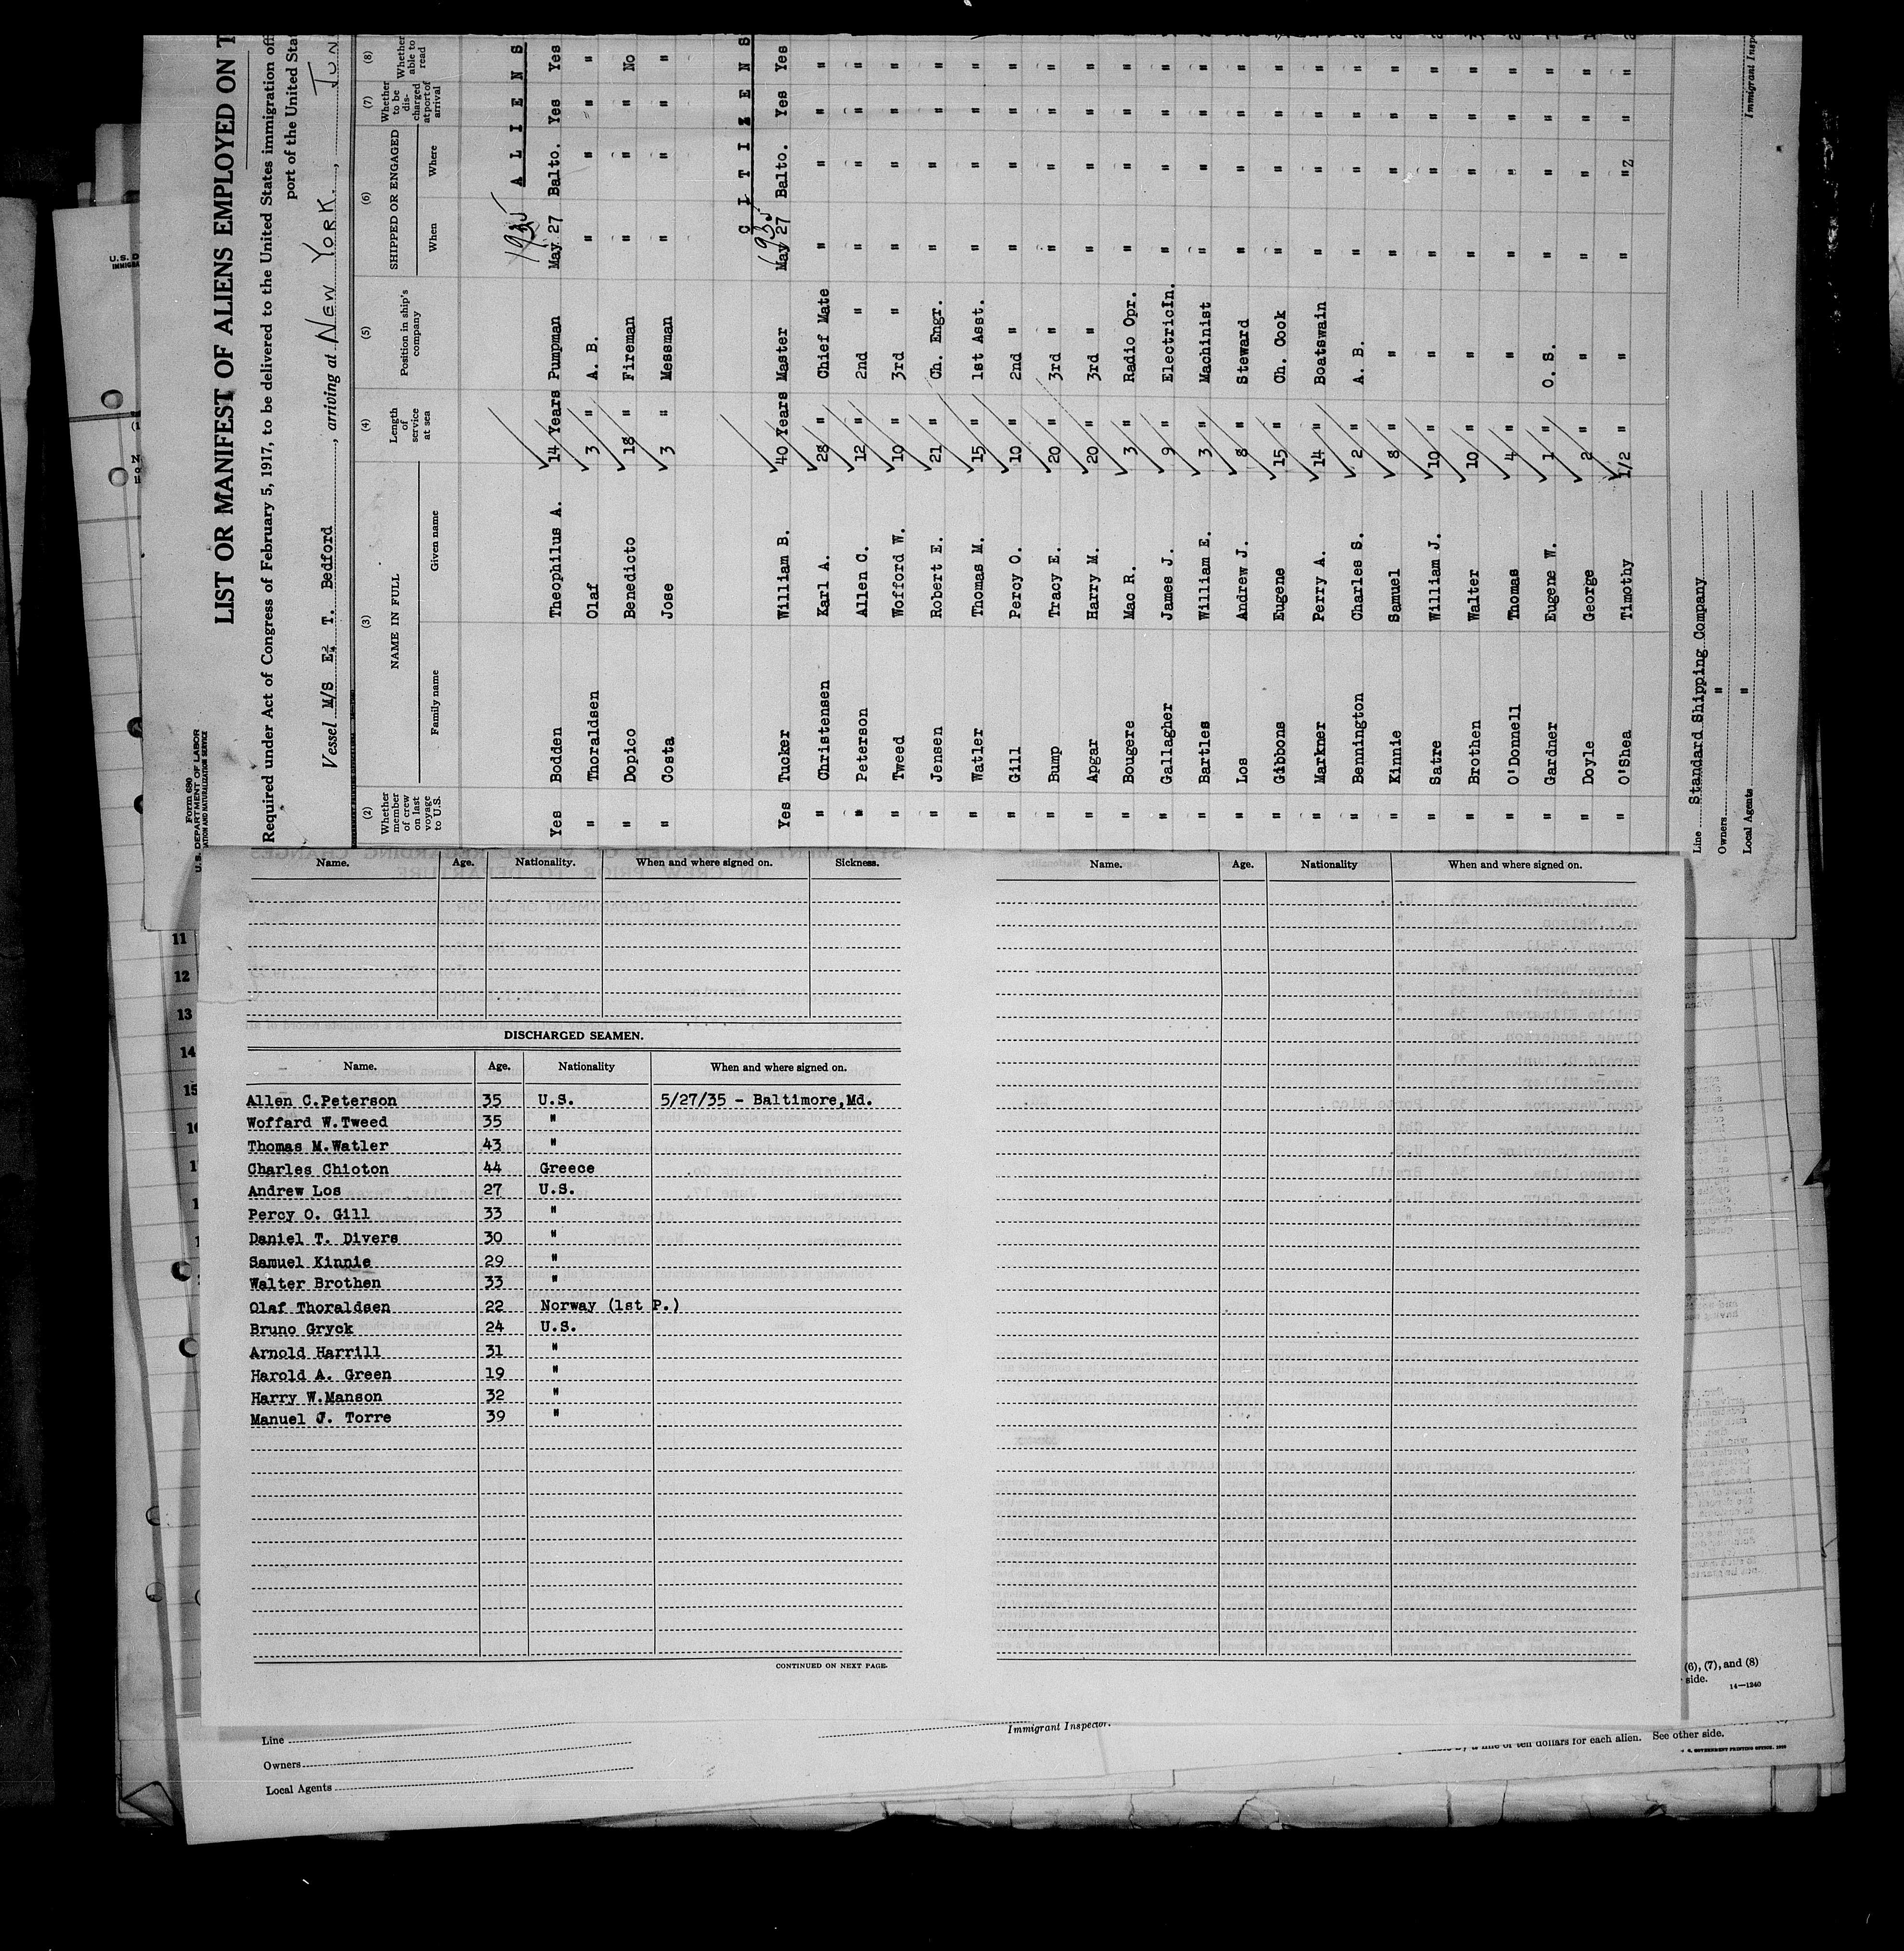 Form 680
U.S. DEPARTMENT OF LABOR
LIST OR MANIFEST OF ALIENS EMPLOYED ON T
Required under Act of Congress of February 5, 1917, to be delivered to the United States immigration offi
port of the United Stat
Vessel M/S E. T. Bedford, arriving at New York.,
(2) Whether member of crew on last voyage to U.S.
(3) NAME IN FULL
Family name Given name
(4) Length of service at sea
(5) Position in ship's company
(6) SHIPPED OR ENGAGED
When Where
(7) Whether to be discharged at port of arrival
(8) Whether able to read
ALIENS
1935
Yes Bodden Theophilus A. 14 Years Pumpman May 27 Balto. Yes Yes
" Thoraldsen Olaf 3 " A. B. " " " "
" Dopico Benedicto 18 " Fireman " " " No
" Costa Jose 3 " Messman " " " "
CITIZENS
1935
Yes Tucker William B. 40 Years Master May 27 Balto. Yes Yes
" Christensen Karl A. 28 " Chief Mate " " " "
" Peterson Allen C. 12 " 2nd " " " " "
" Tweed Wofford W. 10 " 3rd " " " " "
" Jensen Robert E. 21 " Ch. Engr. " " " "
" Watler Thomas M. 15 " 1st Asst. " " " "
" Gill Percy O. 10 " 2nd " " " " "
" Bump Tracy E. 20 " 3rd " " " " "
" Apgar Harry M. 20 " 3rd " " " " "
" Bougere Mac R. 3 " Radio Opr. " " " "
" Gallagher James J. 9 " ElectricIn. " " " "
" Bartles William E. 3 " Machinist " " " "
" Los Andrew J. 8 " Steward " " " "
" Gibbons Eugene 15 " Ch. Cook " " " "
" Markner Perry A. 14 " Boatswain " " " "
" Bennington Charles S. 2 " A. B. " " " "
" Kinnie Samuel 8 " " " " " "
" Satre William J. 10 " " " " " "
" Brothen Walter 10 " " " " " "
" O'Donnell Thomas 4 " " " " " "
" Gardner Eugene W. 1 " O. S. " " " "
" Doyle George 2 " " " " " "
" O'Shea Timothy 1/2 " " " "z " "
Line Standard Shipping Company
Owners "
Local Agents "
Immigrant Insp
Name. Age. Nationality. When and where signed on. Sickness.
DISCHARGED SEAMEN.
Name. Age. Nationality When and where signed on.
Allen C.Peterson 35 U.S. 5/27/35 - Baltimore,Md.
Woffard W.Tweed 35 "
Thomas M.Watler 43 "
Charles Chioton 44 Greece
Andrew Los 27 U.S.
Percy O. Gill 33 "
Daniel T. Divers 30 "
Samuel Kinnie 29 "
Walter Brothen 33 "
Olaf Thoraldsen 22 Norway (1st P.)
Bruno Gryck 24 U.S.
Arnold Harrill 31 "
Harold A. Green 19 "
Harry W.Manson 32 "
Manuel J. Torre 39 "
CONTINUED ON NEXT PAGE.
Name. Age. Nationality When and where signed on.
11
12
13
14
15
(6), (7), and (8)
side.
14—1240
Line
Owners
Local Agents
Immigrant Inspector.
of ten dollars for each alien. See other side.